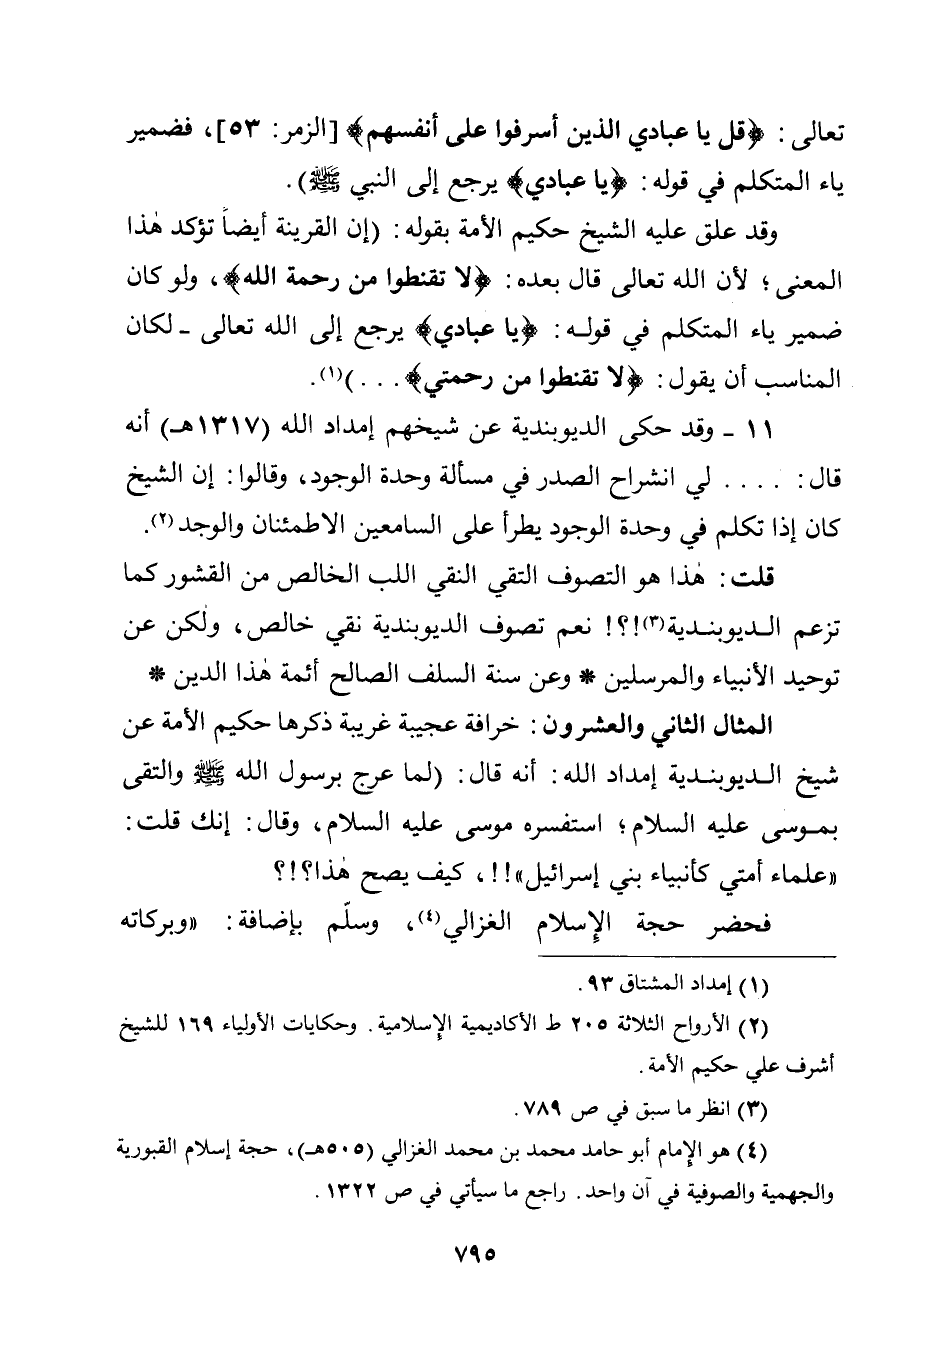 تعالى: ﴿قل يا عبادي الذين أسرفوا على أنفسهم﴾ [الزمر: ٥٣]، فضمير
ياء المتكلم في قوله: ﴿يا عبادي﴾ يرجع إلى النبي ﷺ).
وقد علق عليه الشيخ حكيم الأمة بقوله: (إن القرينة أيضاً تؤكد هٰذا
المعنى؛ لأن الله تعالى قال بعده: ﴿لا تقنطوا من رحمة الله﴾، ولو كان
ضمير ياء المتكلم في قوله: ﴿يا عبادي﴾ يرجع إلى الله تعالى ـ لكان
المناسب أن يقول: ﴿لا تقنطوا من رحمتي﴾...)(١).
١١ ـ وقد حكى الديوبندية عن شيخهم إمداد الله (١٣١٧هـ) أنه
قال: .... لي انشراح الصدر في مسألة وحدة الوجود، وقالوا: إن الشيخ
كان إذا تكلم في وحدة الوجود يطرأ على السامعين الاطمئنان والوجد(٢).
قلت: هٰذا هو التصوف التقي النقي اللب الخالص من القشور كما
تزعم الديوبندية(٣)!؟! نعم تصوف الديوبندية نقي خالص، ولٰكن عن
توحيد الأنبياء والمرسلين * وعن سنة السلف الصالح أئمة هٰذا الدين *
المثال الثاني والعشرون: خرافة عجيبة غريبة ذكرها حكيم الأمة عن
شيخ الديوبندية إمداد الله: أنه قال: (لما عرج برسول الله ﷺ والتقى
بموسى عليه السلام؛ استفسره موسى عليه السلام، وقال: إنك قلت:
«علماء أمتي كأنبياء بني إسرائيل»!!، كيف يصح هٰذا؟!؟
فحضر حجة الإسلام الغزالي(٤)، وسلّم بإضافة: «وبركاته
(١) إمداد المشتاق ٩٣.
(٢) الأرواح الثلاثة ٢٠٥ ط الأكاديمية الإسلامية. وحكايات الأولياء ١٦٩ للشيخ
أشرف علي حكيم الأمة.
(٣) انظر ما سبق في ص ٧٨٩.
(٤) هو الإمام أبو حامد محمد بن محمد الغزالي (٥٠٥هـ)، حجة إسلام القبورية
والجهمية والصوفية في آن واحد. راجع ما سيأتي في ص ١٣٢٢.
٧٩٥